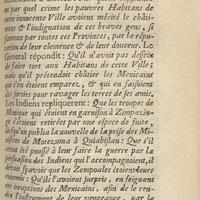 en par quel crime les pauvres Habitans de
cette innocente Ville avoient merité le châti-
ment & l'indignation de ces braves gens, si
fameux par toutes ces Provinces, par la répu-
tation de leur clemence & de leur douceur. Le
General répondit: Qu'il n'avoit pas dessein
de faire tort aux Habitans de cette Ville;
mais qu'il prétendoit châtier les Mexicains
qui s'en étoient emparez, & qui en faisoient
des sorties pour ravager les terres de ses amis.
Les Indiens repliquerent: Que les troupes de
Mexique qui étoient en garnison à Zimpazin-
, s'étoient retirées par une espece de fuite,
lorsqu'on publia la nouvelle de la prise des Mi-
nistres de Motezuma à Quiabistan: Que s'il
avoit été poussé à leur faire la guerre par la
persuasion des Indiens qui l'accompagnoient, il
devoit sçavoir que les Zempoales étoient leurs
ennemis: Qu'ils l'avoient surpris, en feignant
ces irruptions des Mexicains, afin de le ren-
dre l'instrument de leur vengeance, par la